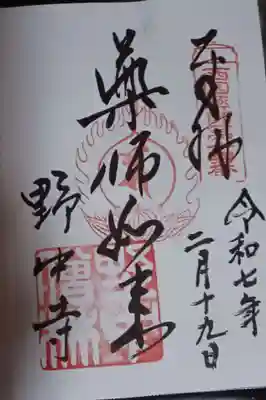 奉拝
令和七年
二月十九日
薬師如来
野中寺